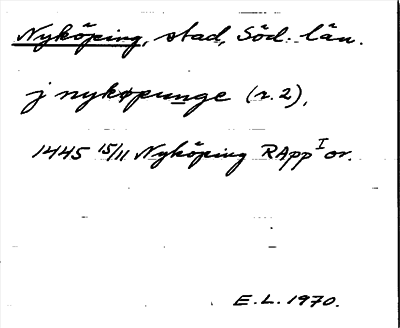 Nyköping, stad, Söd. län.
j nykøpunge (r. 2),
1445 15/11 Nyköping RApp I or.
E.L. 1970.